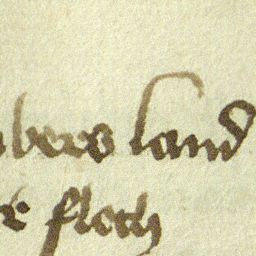 bers land
k floth